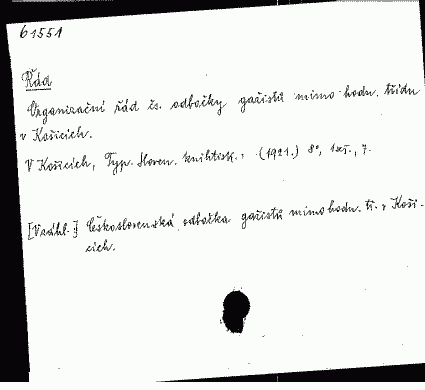 61551
Řád
Organizační řád čs. odbočky gažistů mimo hodn. třídu
v Košicích.
V Košicích, Typ. Sloven. knihtisk. (1921.) 8°, 1 seš., 7.
[Vzdhl.] Československá odbočka gažistů mimo hodn. tř. v Koši-
cích.